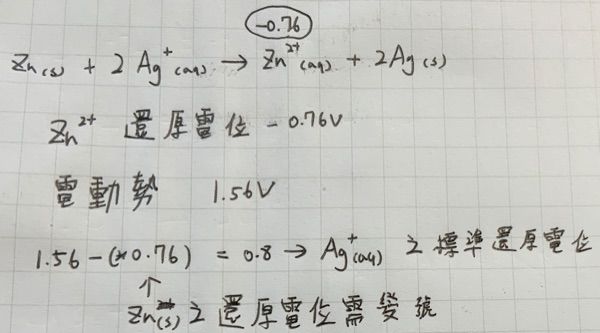 -0.76
Zn(s) + 2Ag⁺(aq) → Zn²⁺(aq) + 2Ag(s)
Zn²⁺ 還原電位 -0.76V
電動勢 1.56V
1.56-(+0.76) = 0.8 → Ag⁺(aq) 之標準還原電位
↑
Zn(s)之還原電位需變號